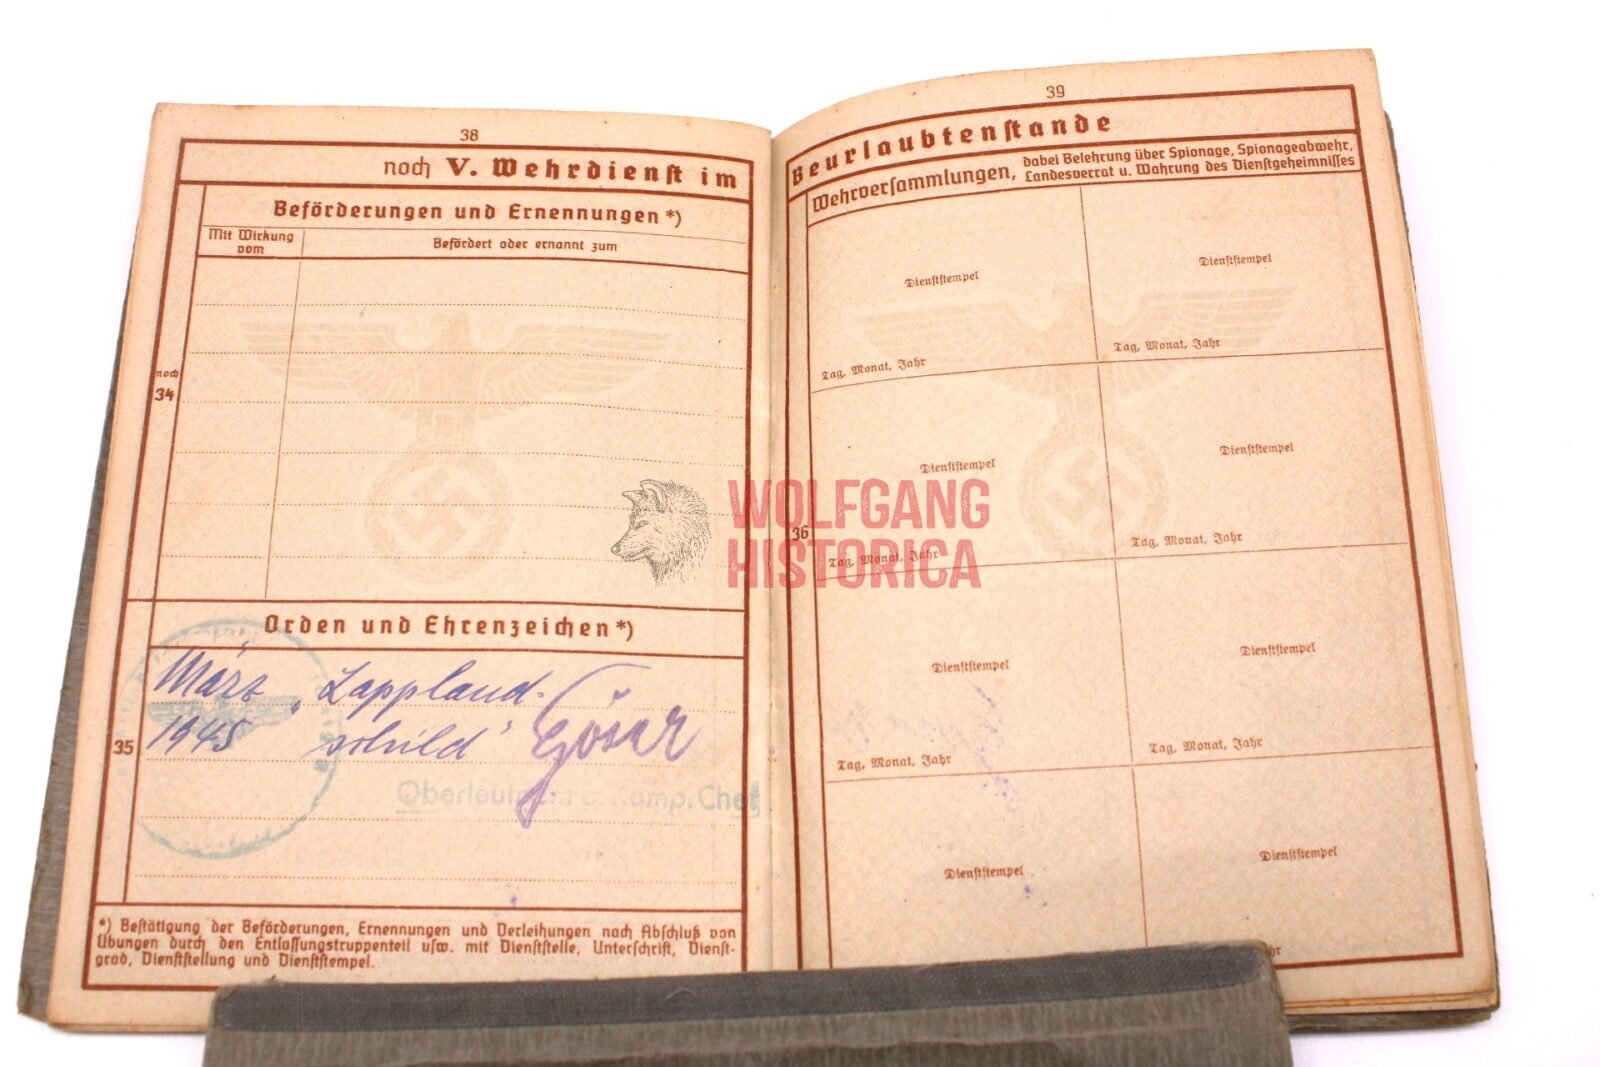 38
noch V. Wehrdienst im
Beförderungen und Ernennungen *)
Mit Wirkung vom
Befördert oder ernannt zum
noch
34
Orden und Ehrenzeichen *)
März „Lappland-
1945 schild"
35
Oberleutnant u. Komp. Chef
*) Bestätigung der Beförderungen, Ernennungen und Verleihungen nach Abschluß von
Übungen durch den Entlassungstruppenteil usw. mit Dienststelle, Unterschrift, Dienst-
grad, Dienststellung und Dienststempel.
39
Beurlaubtenstande
Wehrversammlungen, dabei Belehrung über Spionage, Spionageabwehr,
Landesverrat u. Wahrung des Dienstgeheimnisses
Dienststempel
Dienststempel
Tag, Monat, Jahr
Tag, Monat, Jahr
Dienststempel
Dienststempel
36
Tag, Monat, Jahr
Tag, Monat, Jahr
Dienststempel
Dienststempel
Tag, Monat, Jahr
Tag, Monat, Jahr
Dienststempel
Dienststempel
WOLFGANG
HISTORICA